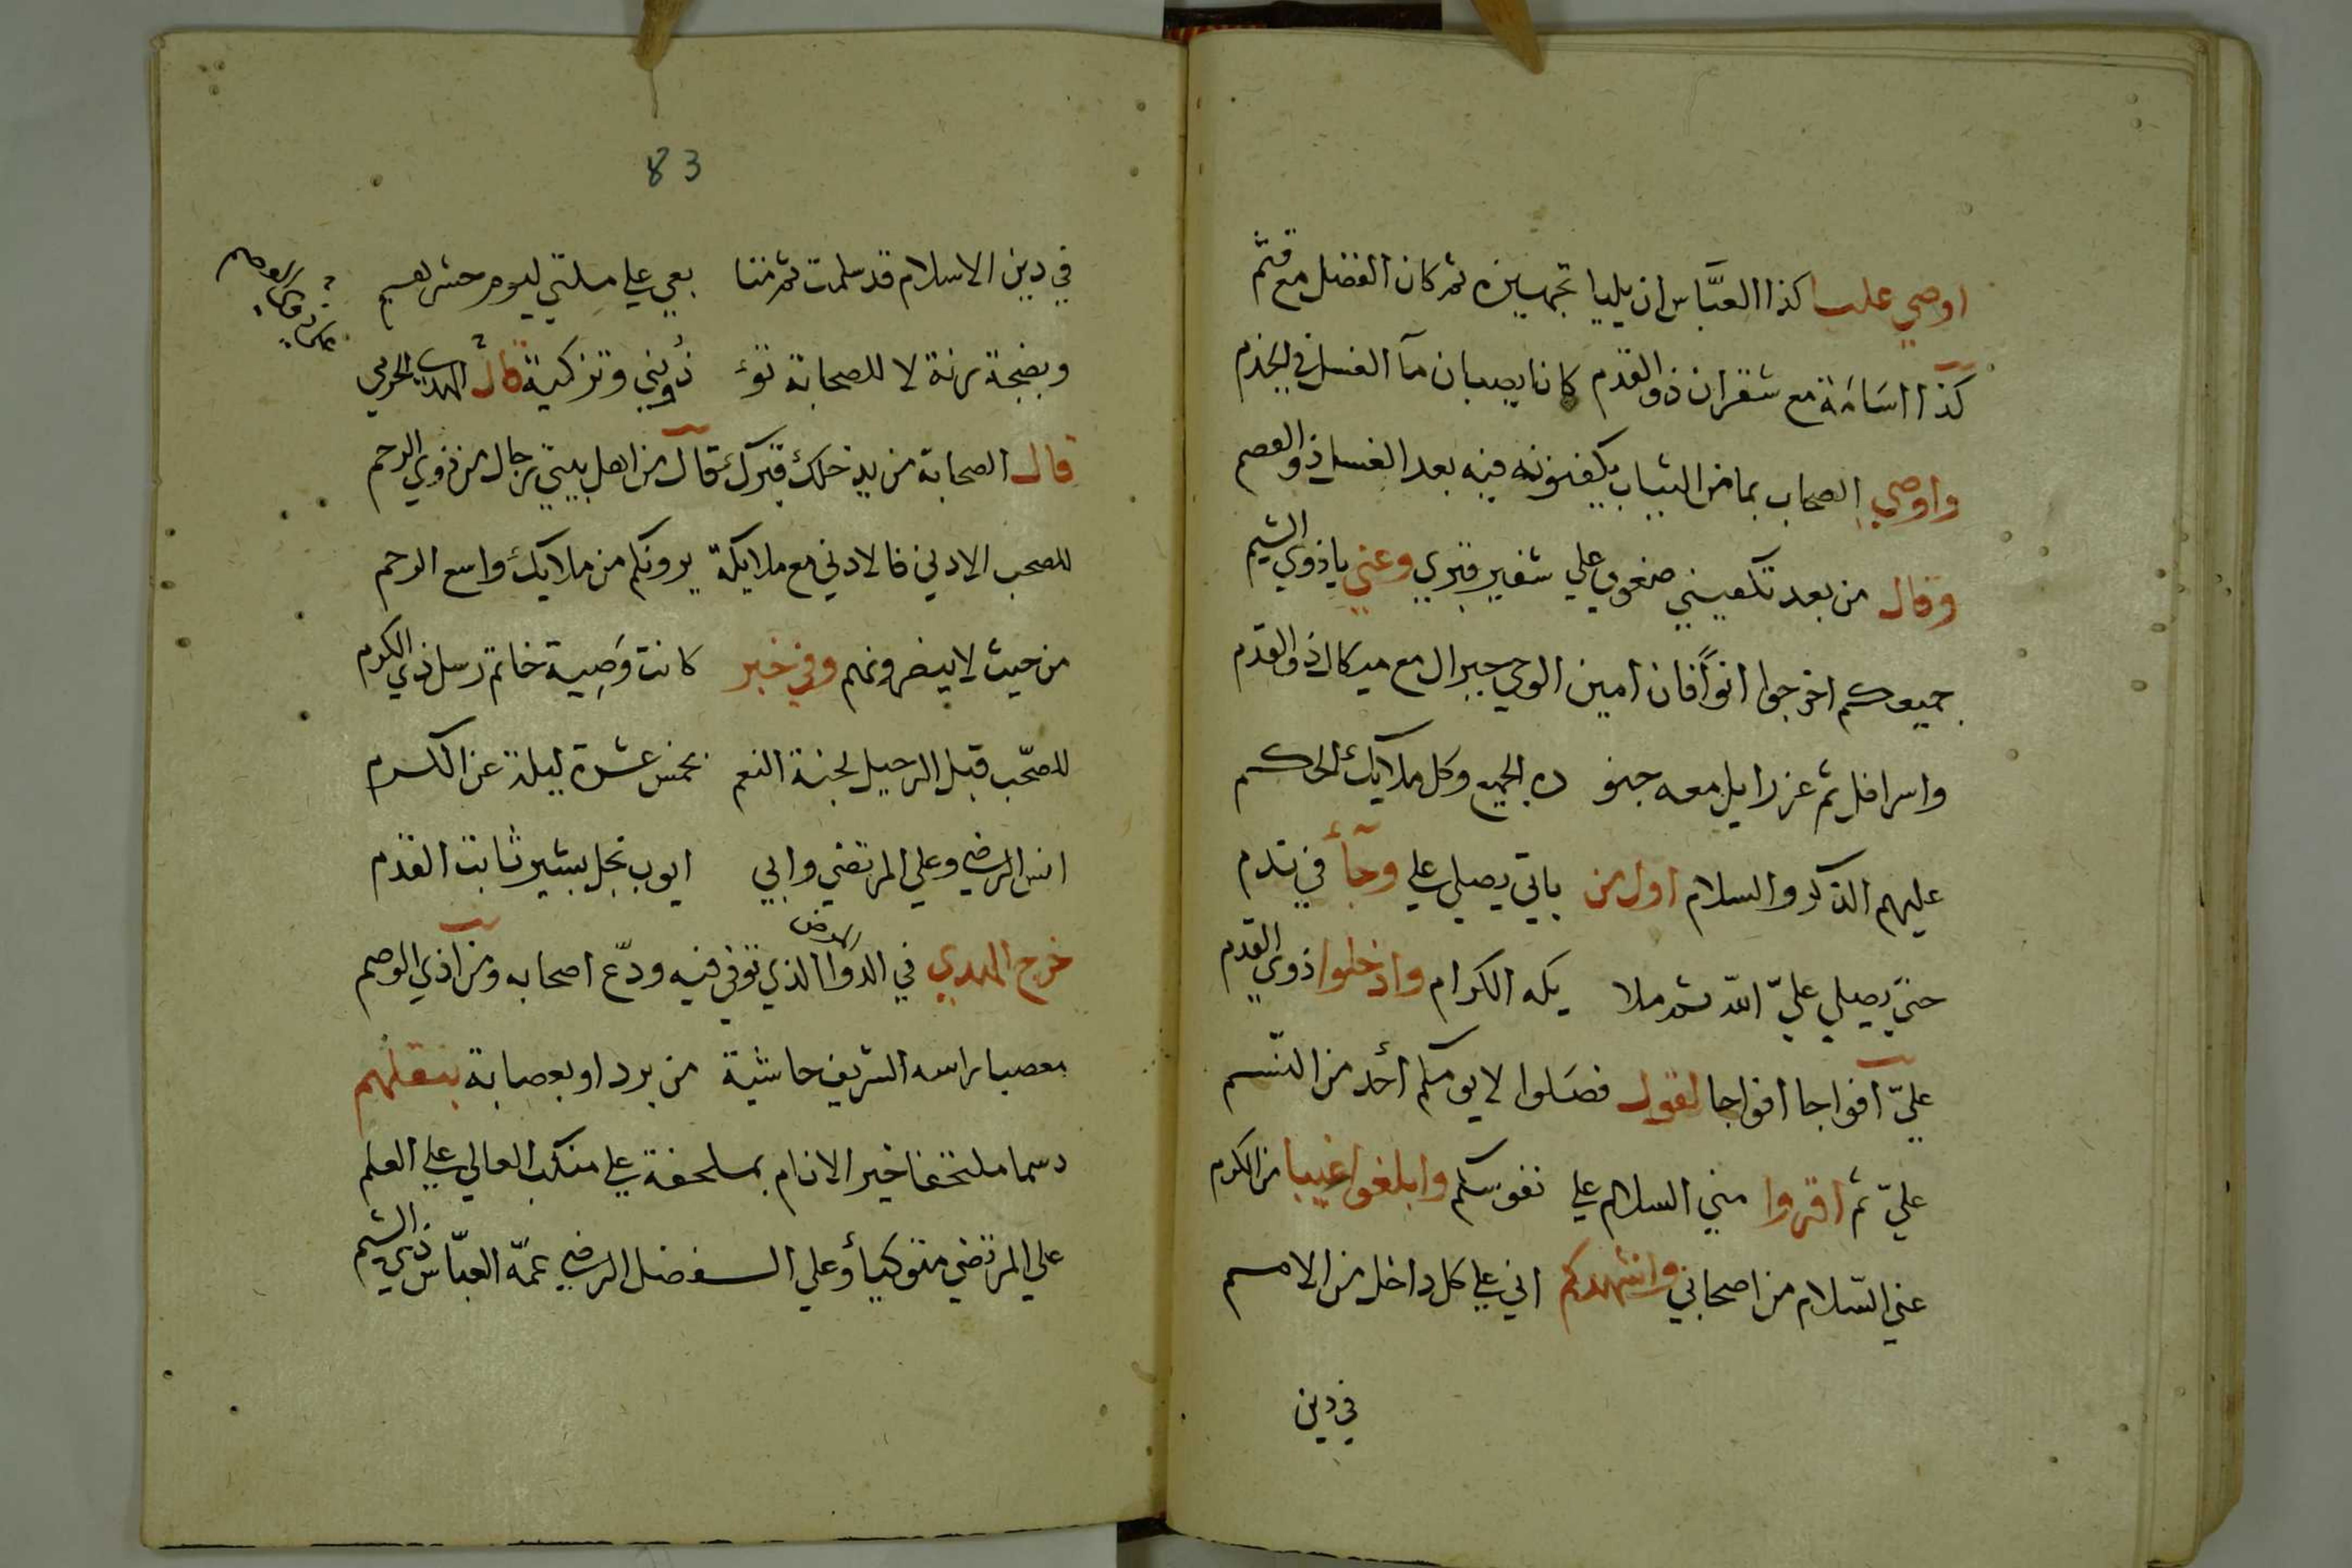 اوصي عليا كذا العبّاس ان يليا تجهيزه ثم كان الفضل مع قثم
كذا اسَامَة مع شقران ذو القدم كانا يصبان مآ الغسل في
واوصي الصحاب بما من الثياب يكفنونه فيه بعد الغسل ذو العصم
وقال من بعد تكفيني ضعوني علي شفير قبري وعني يا ذوي الشيم
جميعكم اخرجوا فان امين الوحي جبرال مع ميكال ذو القدم
واسرافل ثم عزرايل معه جنو ده الجميع وكل ملايك الحكم
عليهم الذكر والسلام اول من ياتي يصلي علي وجآء في
حتي يصلي عليّ الله ثم ملا يكه الكرام وادخلوا ذوي القدم
عليّ افواجا افواجا لقول فصَلوا لا يومكم أحد من النّسم
عليّ ثم اقروا مني السلام علي نفوسكم وابلغوا غيبا من الكرم
عني السّلام من اصحابي واشهدكم اني علي كل داخل من الامم
في دين
83
في دين الاسلام قد سلمت ثم منتا بعي علي ملتي ليوم حشرهم
وبضجة برنة لا للصحابة تؤ ذُوني وتزكية قال الحرمي
قال الصحابة من يدخلك قبرك قال من اهل بيتي رجال من ذوي الرحم
للصحب الادني فالادني مع ملايكة يرونكم من ملايك واسع الرحم
من حيث لا يبصرونهم وفي خبر كانت وَصِية خاتم رسل ذي الكرم
للصّحب قبل الرحيل لجنة النعم بخمس عشرة ليلة عن الكرم
انس الرضي وعلي المرتضي وابي ايوب نجل بشير ثابت القدم
خرج المهدي في الدوا الذي توفي فيه ودّع اصحابه ومن اذي الوصم
معصبا براسه الشريف حاشية من برد او بعصابة بنقلهم
دسما ملتحفا خير الانام بملحفة علي منكب العالي علي العلم
علي المرتضي متوكيا وعلي الفضل الرضي عمّه العبّاس ذي الشيم